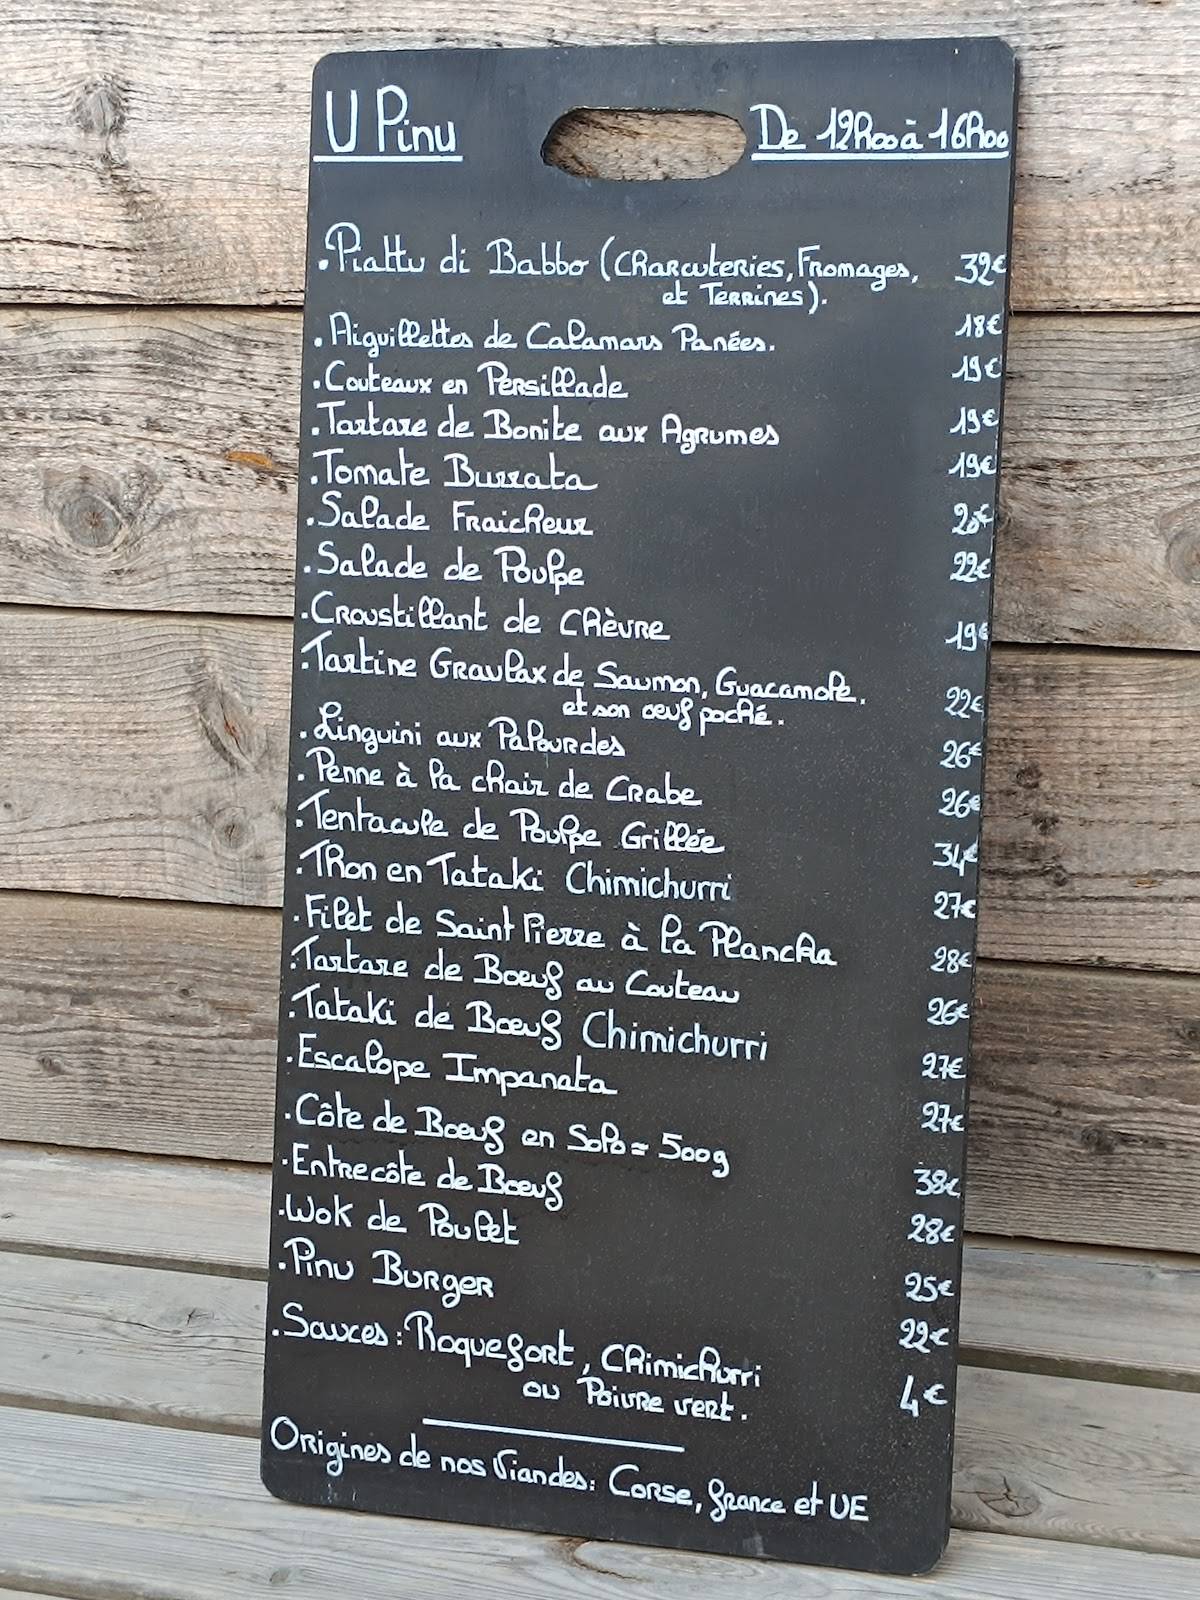 U Pinu De 12h00 à 16h00
. Piattu di Babbo (Charcuteries, Fromages, 32€
et Terrines).
. Aiguillettes de Calamars Panées. 18€
. Couteaux en Persillade 19€
. Tartare de Bonite aux Agrumes 19€
. Tomate Burrata 19€
. Salade Fraicheur 20€
. Salade de Poulpe 22€
. Croustillant de Chèvre 19€
. Tartine Gravlax de Saumon, Guacamole. 22€
et son oeuf poché.
. Linguini aux Palourdes 26€
. Penne à la chair de Crabe 26€
. Tentacule de Poulpe Grillée 34€
. Thon en Tataki Chimichurri 27€
. Filet de Saint Pierre à la Plancha 28€
. Tartare de Bœuf au Couteau 26€
. Tataki de Bœuf Chimichurri 27€
. Escalope Impanata 27€
. Côte de Bœuf en Solo = 500g 38€
. Entrecôte de Bœuf 28€
. Wok de Poulet 25€
. Pinu Burger 22€
. Sauces : Roquefort, Chimichurri 4€
ou Poivre vert.
Origines de nos Viandes: Corse, France et UE